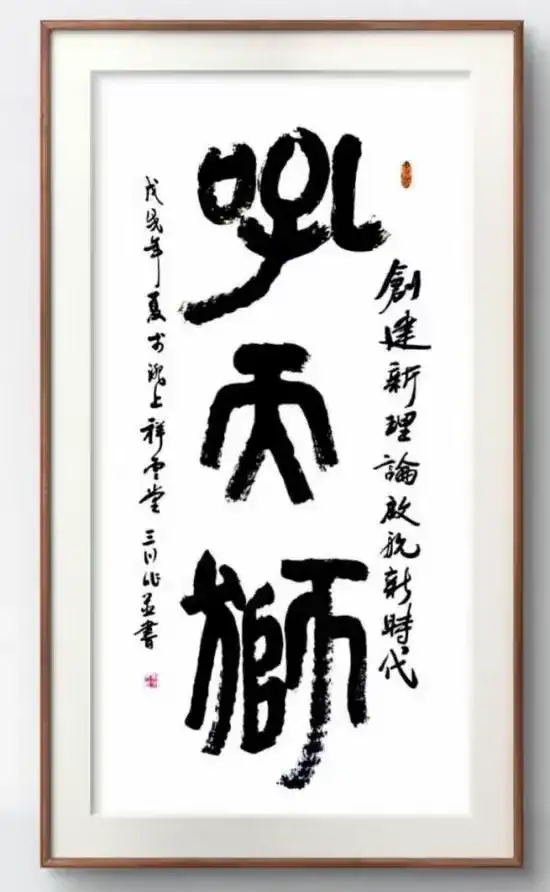 創建新理論啟航新時代
吼天獅
戊戌年夏於上祥雲堂 三川作並書